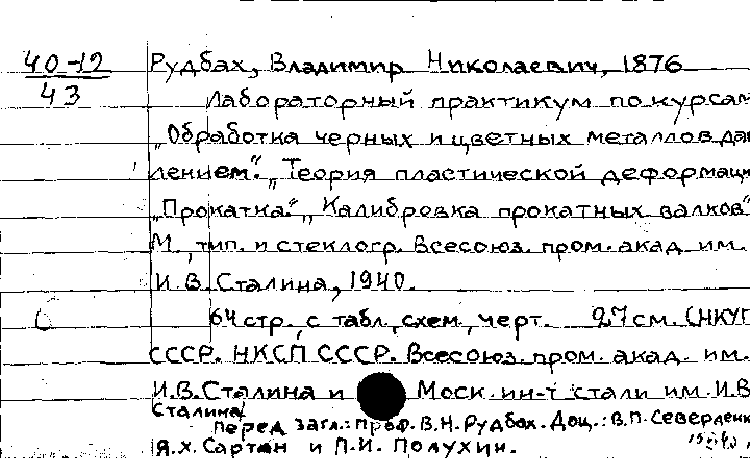 40-12 Рудбах, Владимир Николаевич, 1876
43 Лабораторный практикум по курсам
„Обработка черных и цветных металлов дав
лением". „Теория пластической деформаци
„Прокатка". „Калибровка прокатных валков"
М., тип. и стеклогр. Всесоюз. пром. акад. им.
И.В. Сталина, 1940.
64 стр., с табл., схем., черт. 27 см. (НКУП
СССР. НКСП СССР. Всесоюз. пром. акад. им.
И.В. Сталина и Моск. ин-т стали им. И.В
Сталина)
перед загл.: проф. В.Н. Рудбах. Доц.: В.П. Северденк
Я.Х. Сартан и П.И. Полухин.